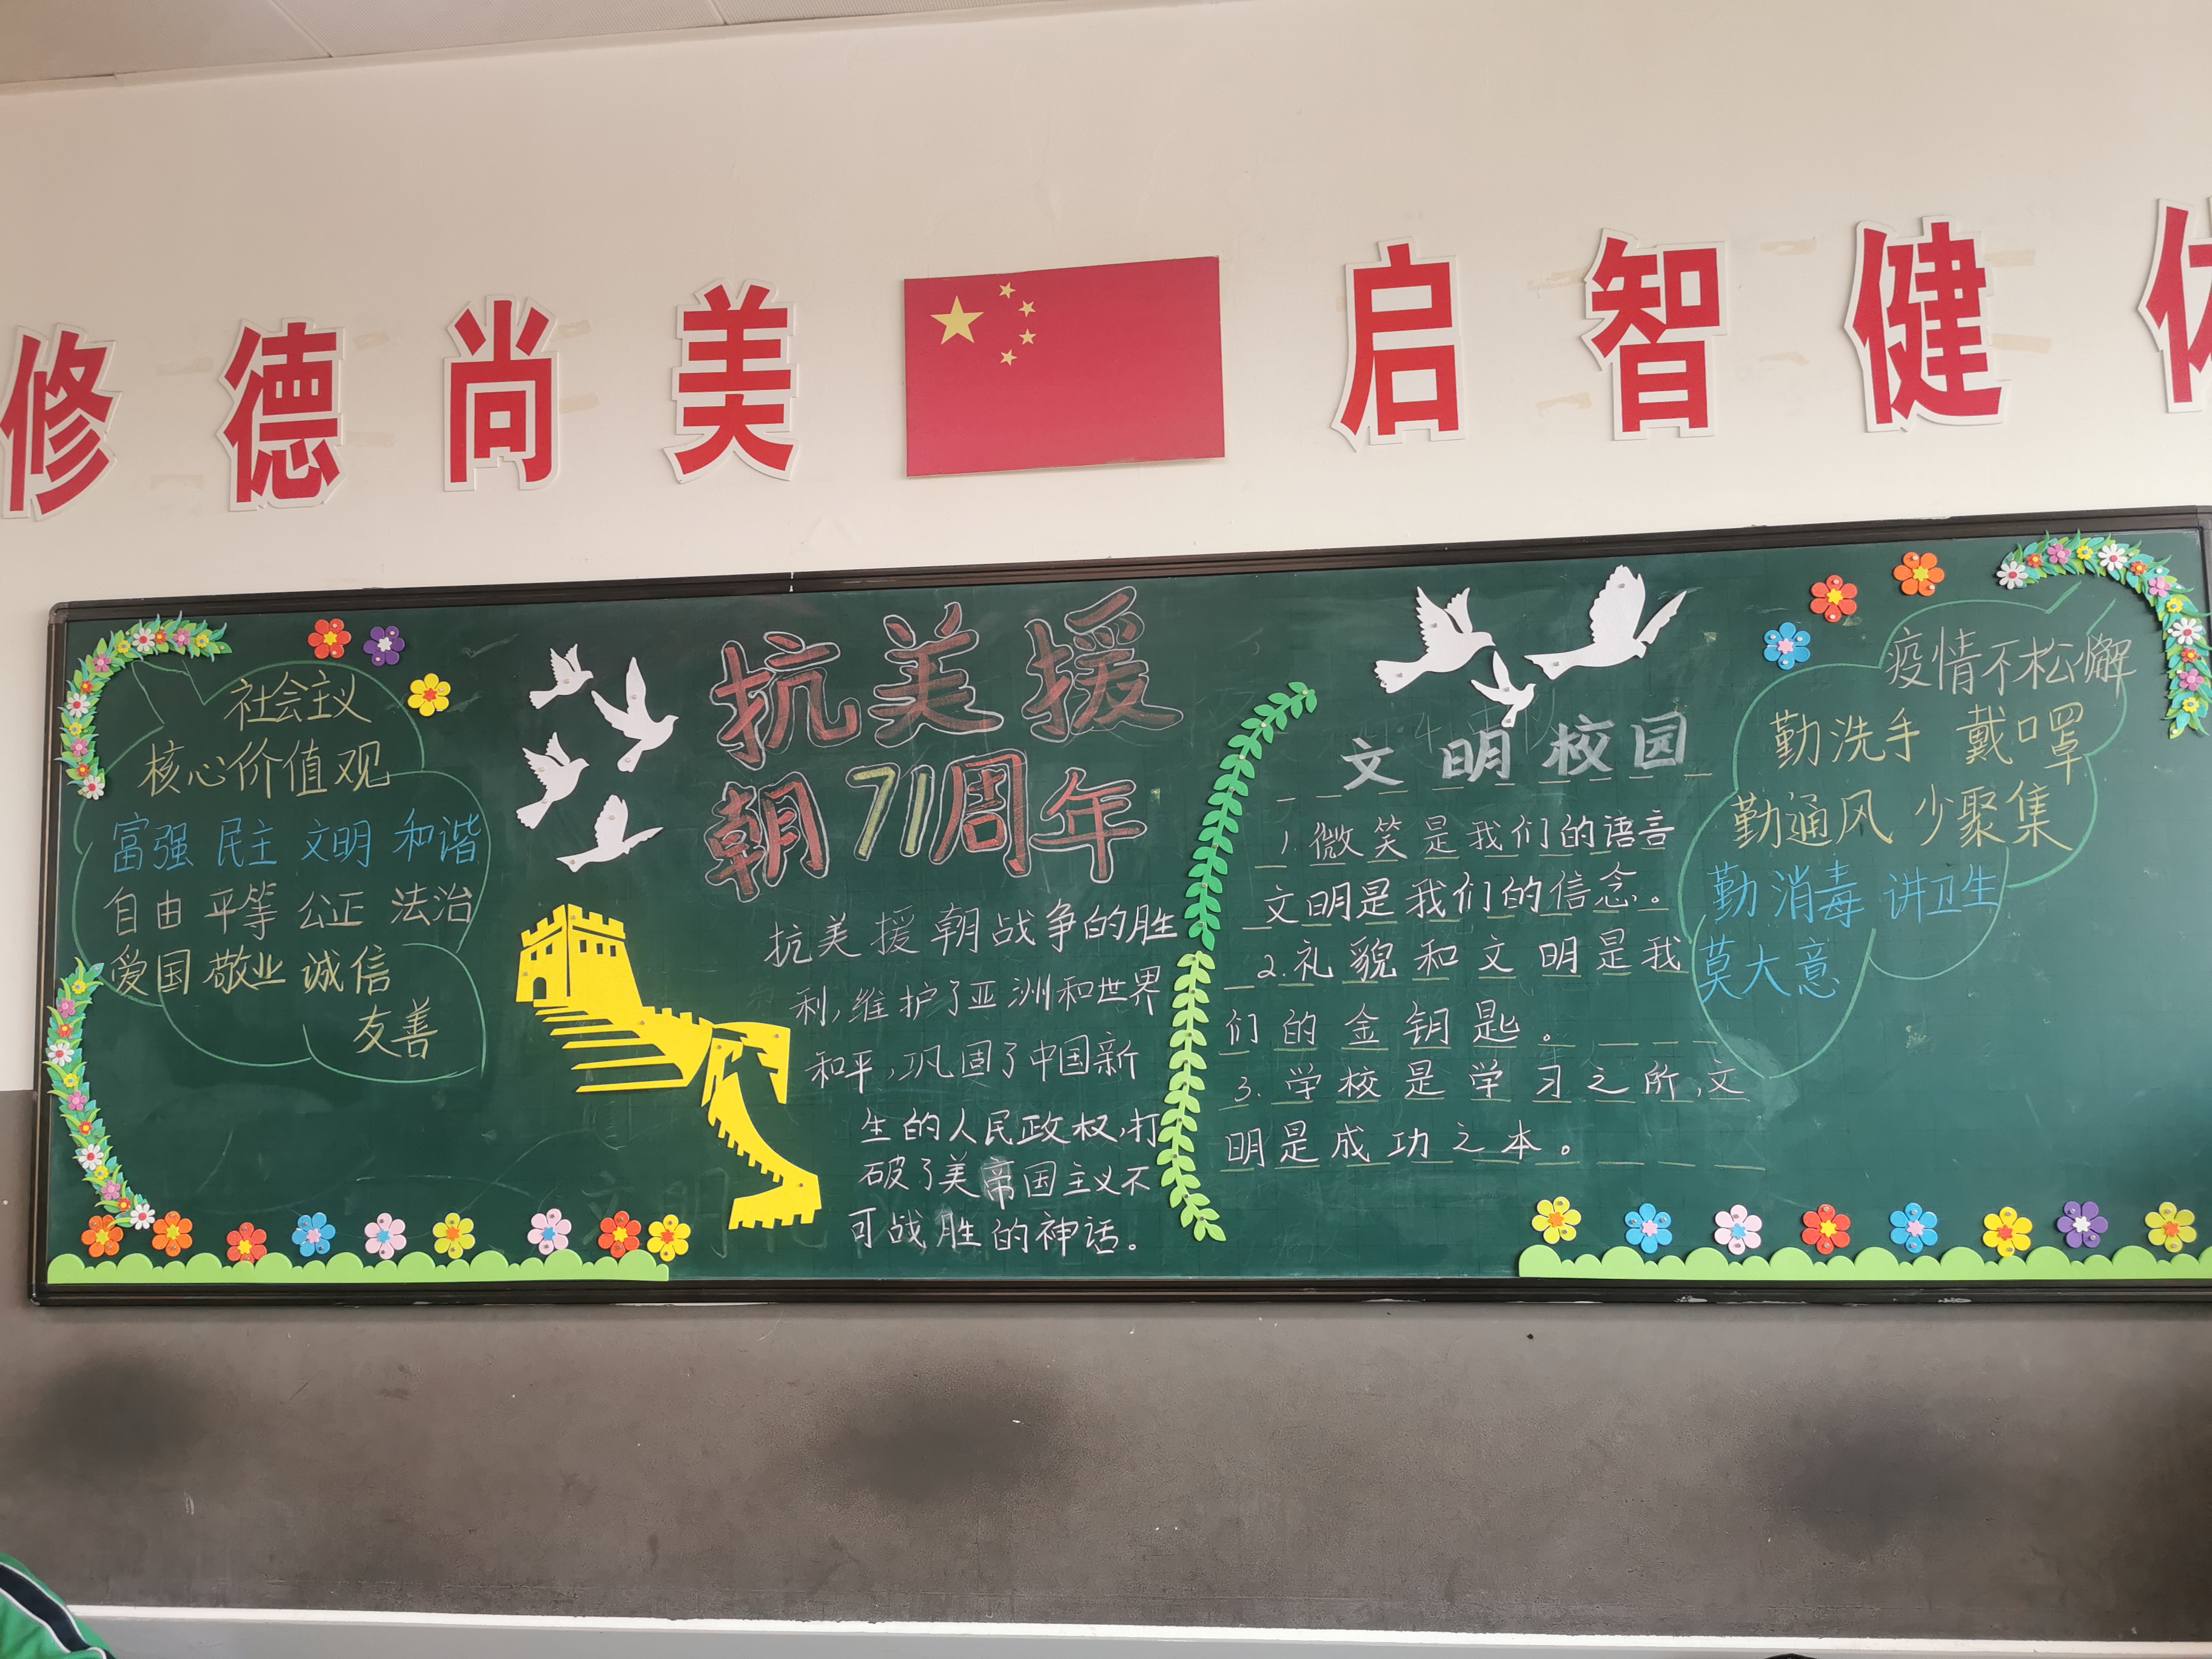 修德尚美 启智健体
社会主义
核心价值观
富强 民主 文明 和谐
自由 平等 公正 法治
爱国 敬业 诚信
友善
抗美援
朝71周年
抗美援朝战争的胜
利,维护了亚洲和世界
和平,巩固了中国新
生的人民政权,打
破了美帝国主义不
可战胜的神话。
文明校园
1.微笑是我们的语言
文明是我们的信念。
2.礼貌和文明是我
们的金钥匙。
3.学校是学习之所,文
明是成功之本。
疫情不松懈
勤洗手 戴口罩
勤通风 少聚集
勤消毒 讲卫生
莫大意